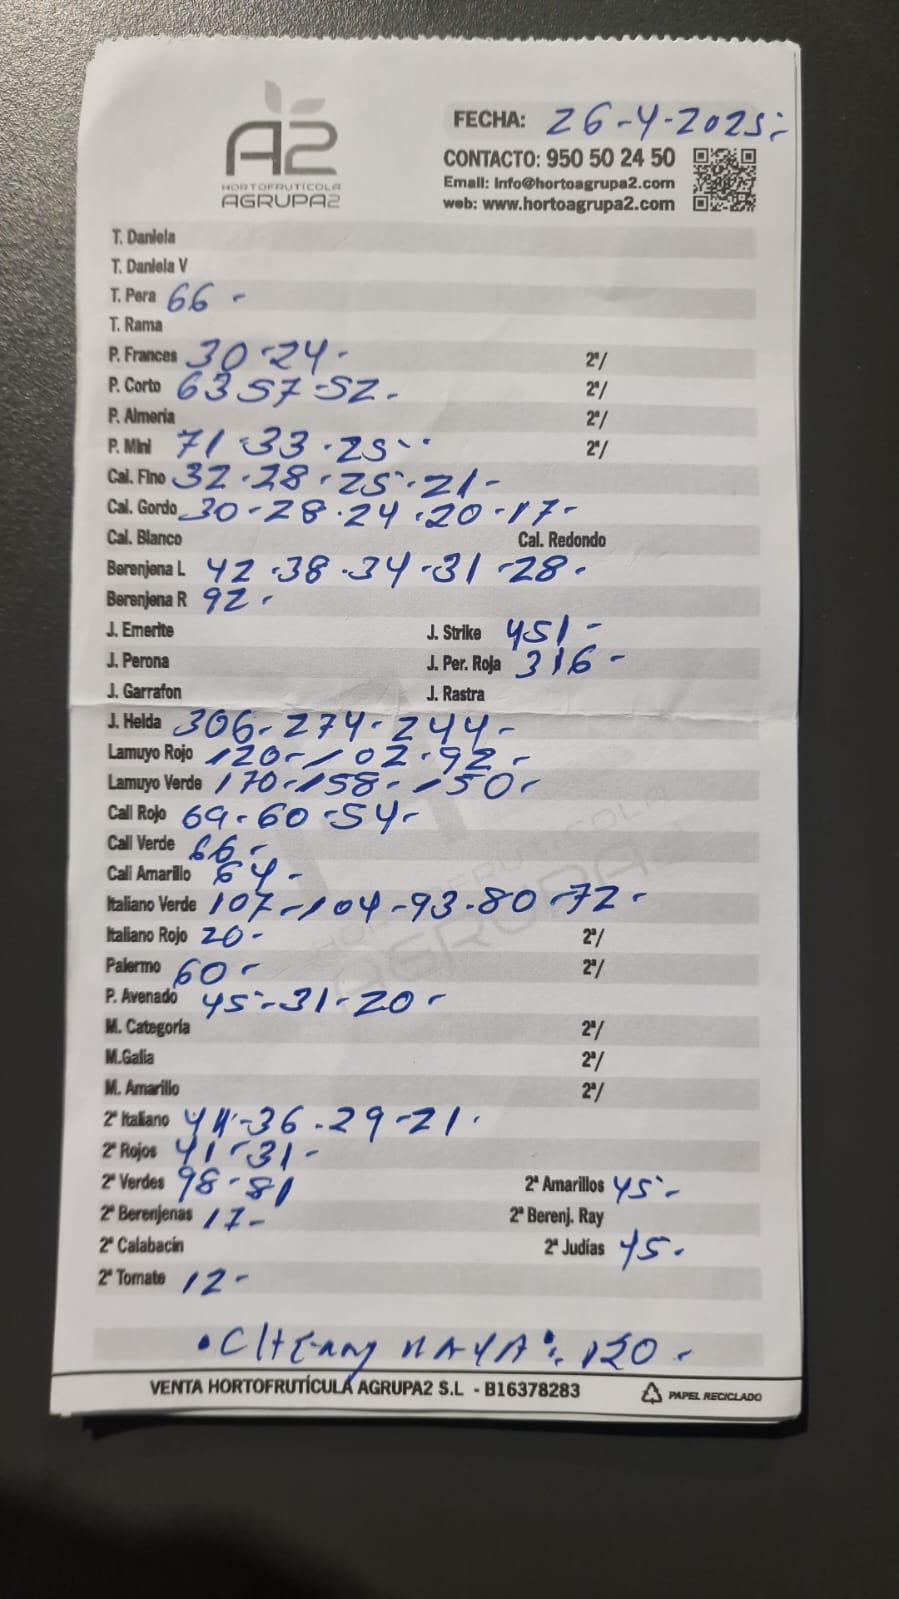 A2
HORTOFRUTÍCOLA
AGRUPA2
FECHA: 26-4-2025
CONTACTO: 950 50 24 50
Email: info@hortoagrupa2.com
web: www.hortoagrupa2.com
T. Daniela
T. Daniela V
T. Pera 66 -
T. Rama
P. Frances 30 - 24 - 2ª/
P. Corto 63 57 - 52 - 2ª/
P. Almeria 2ª/
P. Mini 71 - 33 - 25 - 2ª/
Cal. Fino 32 - 28 - 25 - 21 -
Cal. Gordo 30 - 28 - 24 - 20 - 17 -
Cal. Blanco Cal. Redondo
Berenjena L 42 - 38 - 34 - 31 - 28 -
Berenjena R 92 -
J. Emerite J. Strike 451 -
J. Perona J. Per. Roja 316 -
J. Garrafon J. Rastra
J. Helda 306 - 274 - 244 -
Lamuyo Rojo 120 - 102 - 92 -
Lamuyo Verde 170 - 158 - 150 -
Cali Rojo 69 - 60 - 54 -
Cali Verde 66 -
Cali Amarillo 64 -
Italiano Verde 107 - 104 - 93 - 80 - 72 -
Italiano Rojo 20 - 2ª/
Palermo 60 - 2ª/
P. Avenado 45 - 31 - 20 -
M. Categoría 2ª/
M.Galia 2ª/
M. Amarillo 2ª/
2ª Italiano - 36 - 29 - 21 -
2ª Rojos 41 - 31 -
2ª Verdes 98 - 81 2ª Amarillos 45 -
2ª Berenjenas 17 - 2ª Berenj. Ray
2ª Calabacín 2ª Judías 45 -
2ª Tomate 12 -
120 -
VENTA HORTOFRUTÍCULA AGRUPA2 S.L - B16378283 PAPEL RECICLADO